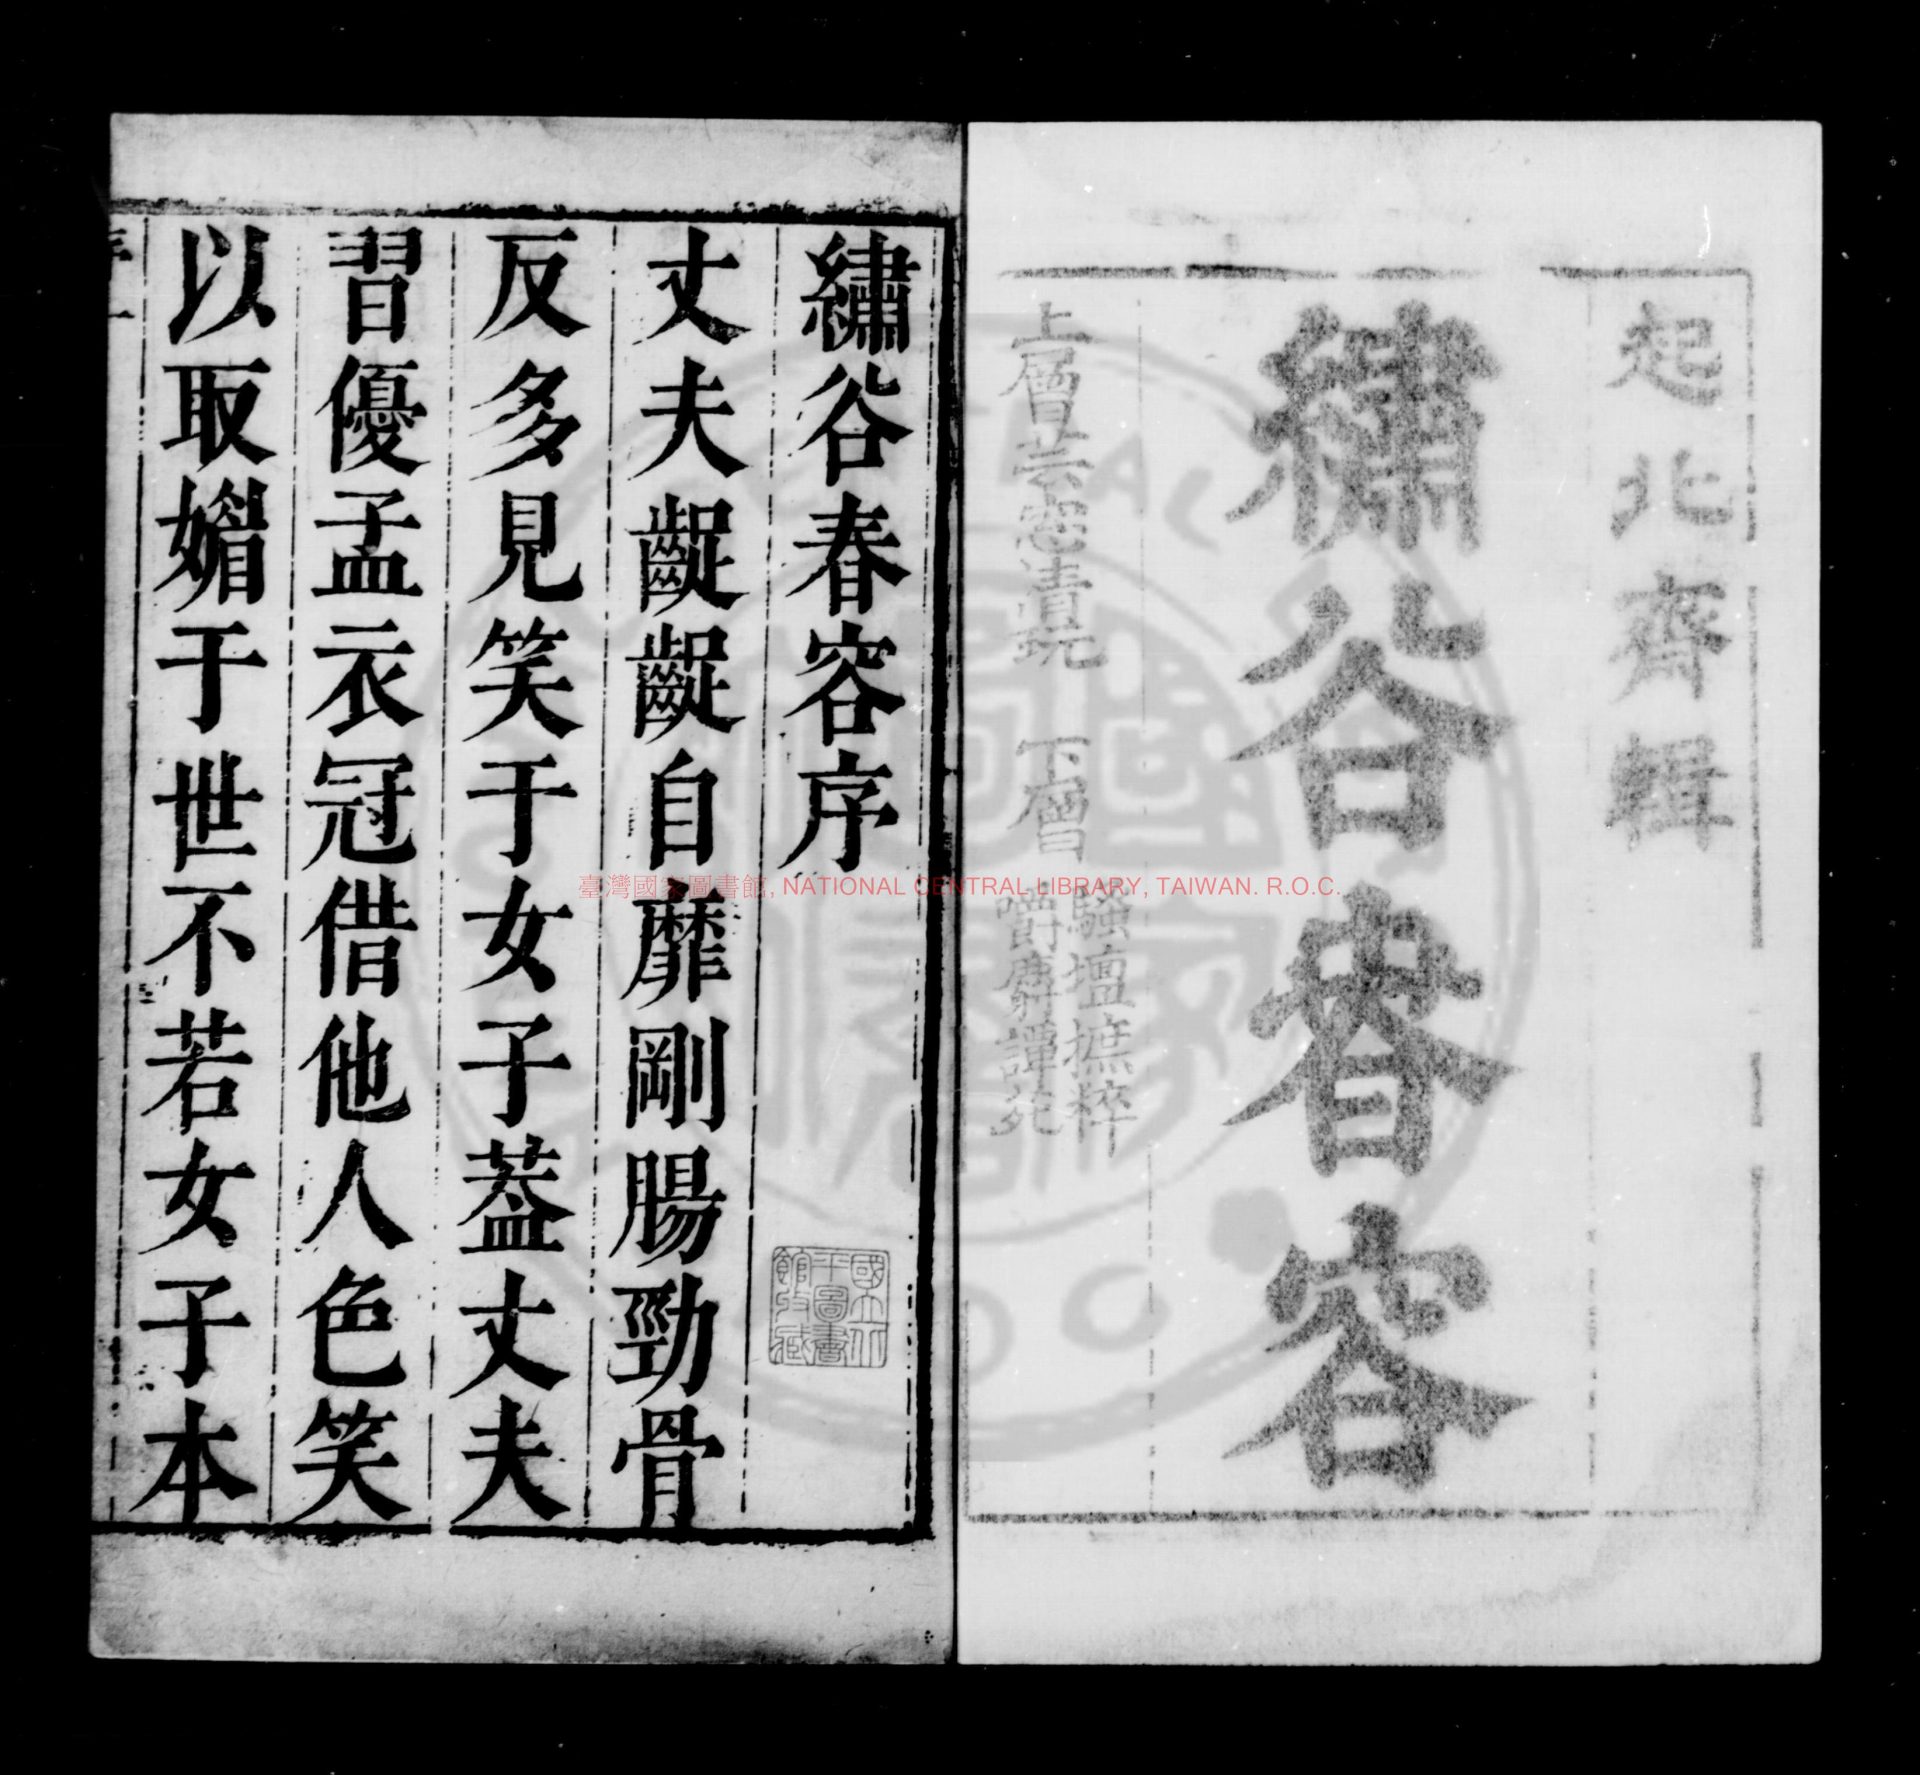 起北齋輯
繡谷春容
上層 芸窓清玩 下層 騷壇摭粹
嚼麝譚苑
繡谷春容序
丈夫齪齪自靡剛腸勁骨
反多見笑于女子葢丈夫
習優孟衣冠借他人色笑
以取媚于世不若女子本
序 一
國立北
平圖書
館收藏
臺灣國家圖書館, NATIONAL CENTRAL LIBRARY, TAIWAN. R.O.C.